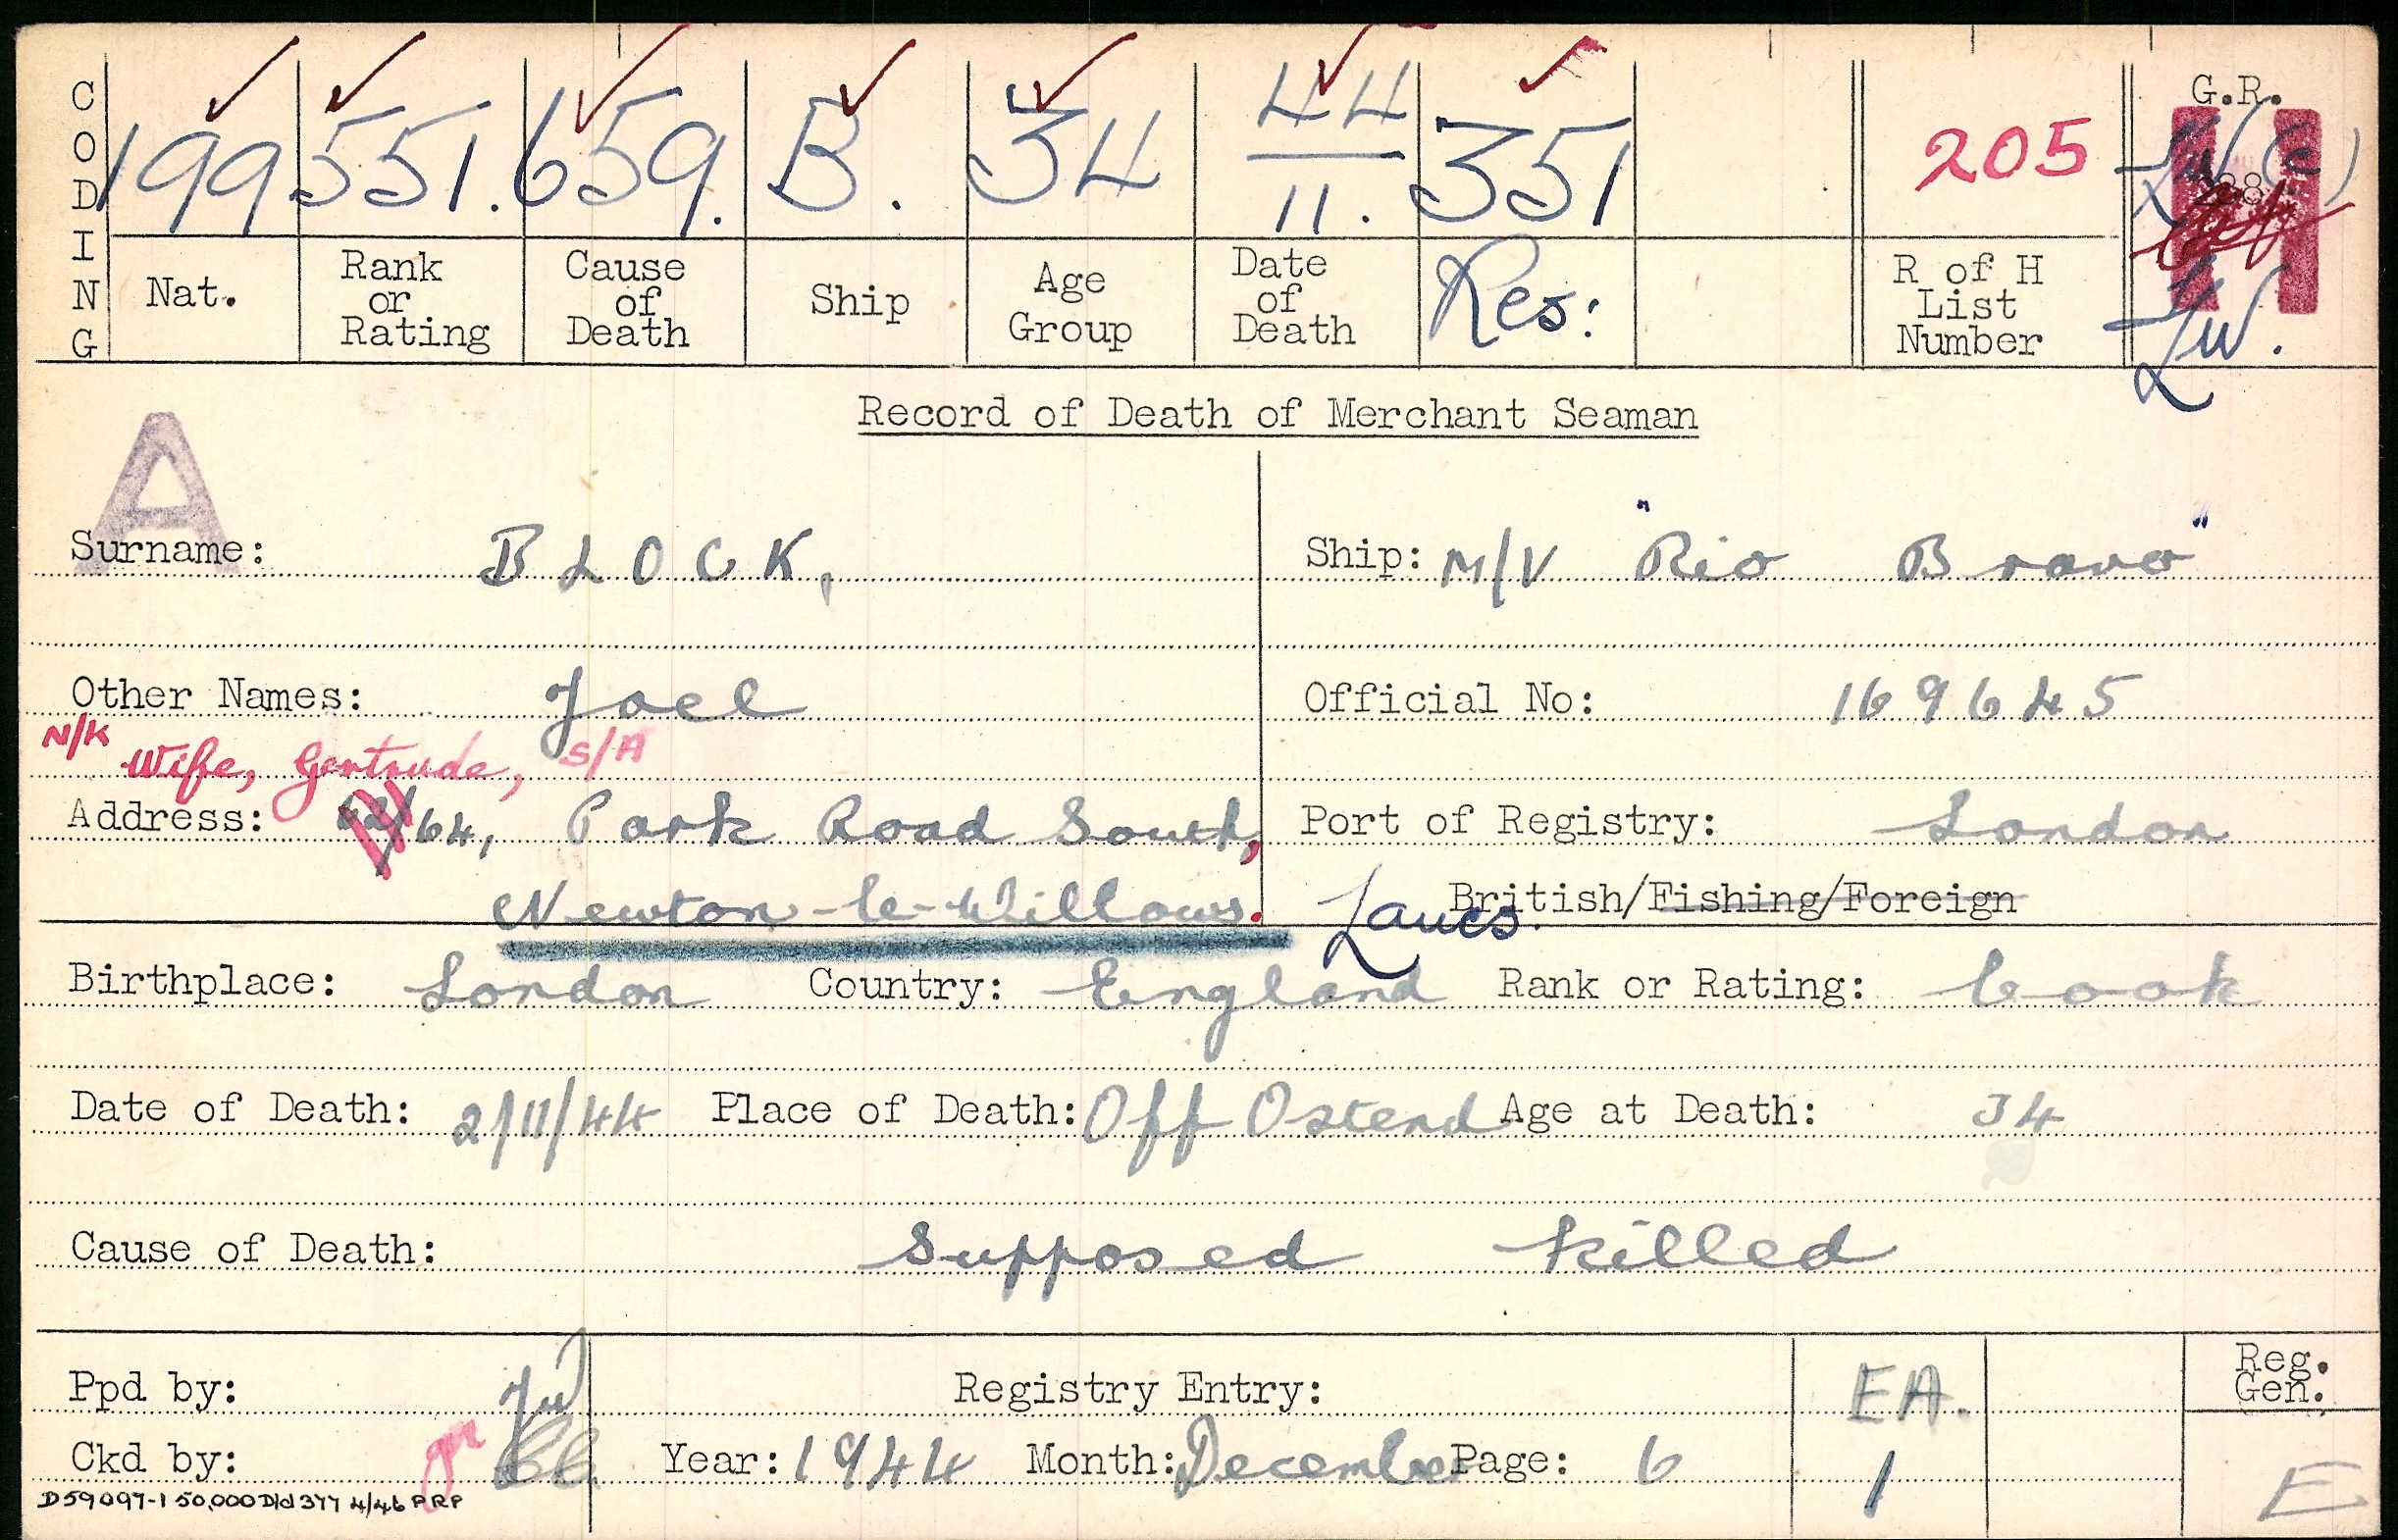 CODING
199 551. 659. B. 34 44/11. 351 205 G.R.
Nat. Rank or Rating Cause of Death Ship Age Group Date of Death Res: R of H List Number
Record of Death of Merchant Seaman
A
Surname: BLOCK, Ship: M/V "Rio Bravo"
Other Names: Joel Official No: 169645
N/K Wife, Gertrude, S/A
Address: 64, Park Road South, Port of Registry: London
Newton-le-Willows. Lancs. British/Fishing/Foreign
Birthplace: London Country: England Rank or Rating: Cook
Date of Death: 2/11/44 Place of Death: Off Ostend Age at Death: 34
Cause of Death: Supposed killed
Ppd by: Registry Entry: EA. Reg. Gen.
Ckd by: Year: 1944 Month: December Page: 6 1 E
D59097-1 50,000 D/d 377 4/46 PRP